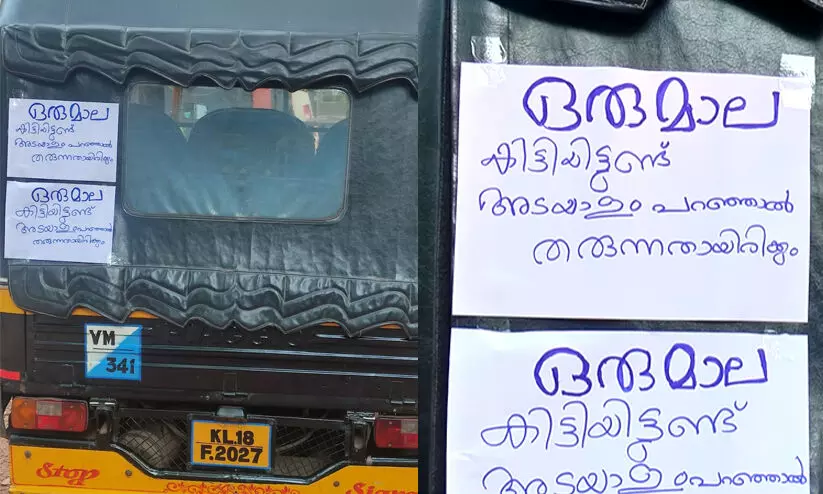 ഒരു മാല
കിട്ടിയിട്ടുണ്ട്
അടയാളം പറഞ്ഞാൽ
തരുന്നതായിരിക്കും
ഒരു മാല
കിട്ടിയിട്ടുണ്ട്
അടയാളം പറഞ്ഞാൽ
തരുന്നതായിരിക്കും
VM
341
KL.18
F.2027
Stop
Signal
ഒരു മാല
കിട്ടിയിട്ടുണ്ട്
അടയാളം പറഞ്ഞാൽ
തരുന്നതായിരിക്കും
ഒരു മാല
കിട്ടിയിട്ടുണ്ട്
അടയാളം പറഞ്ഞാൽ